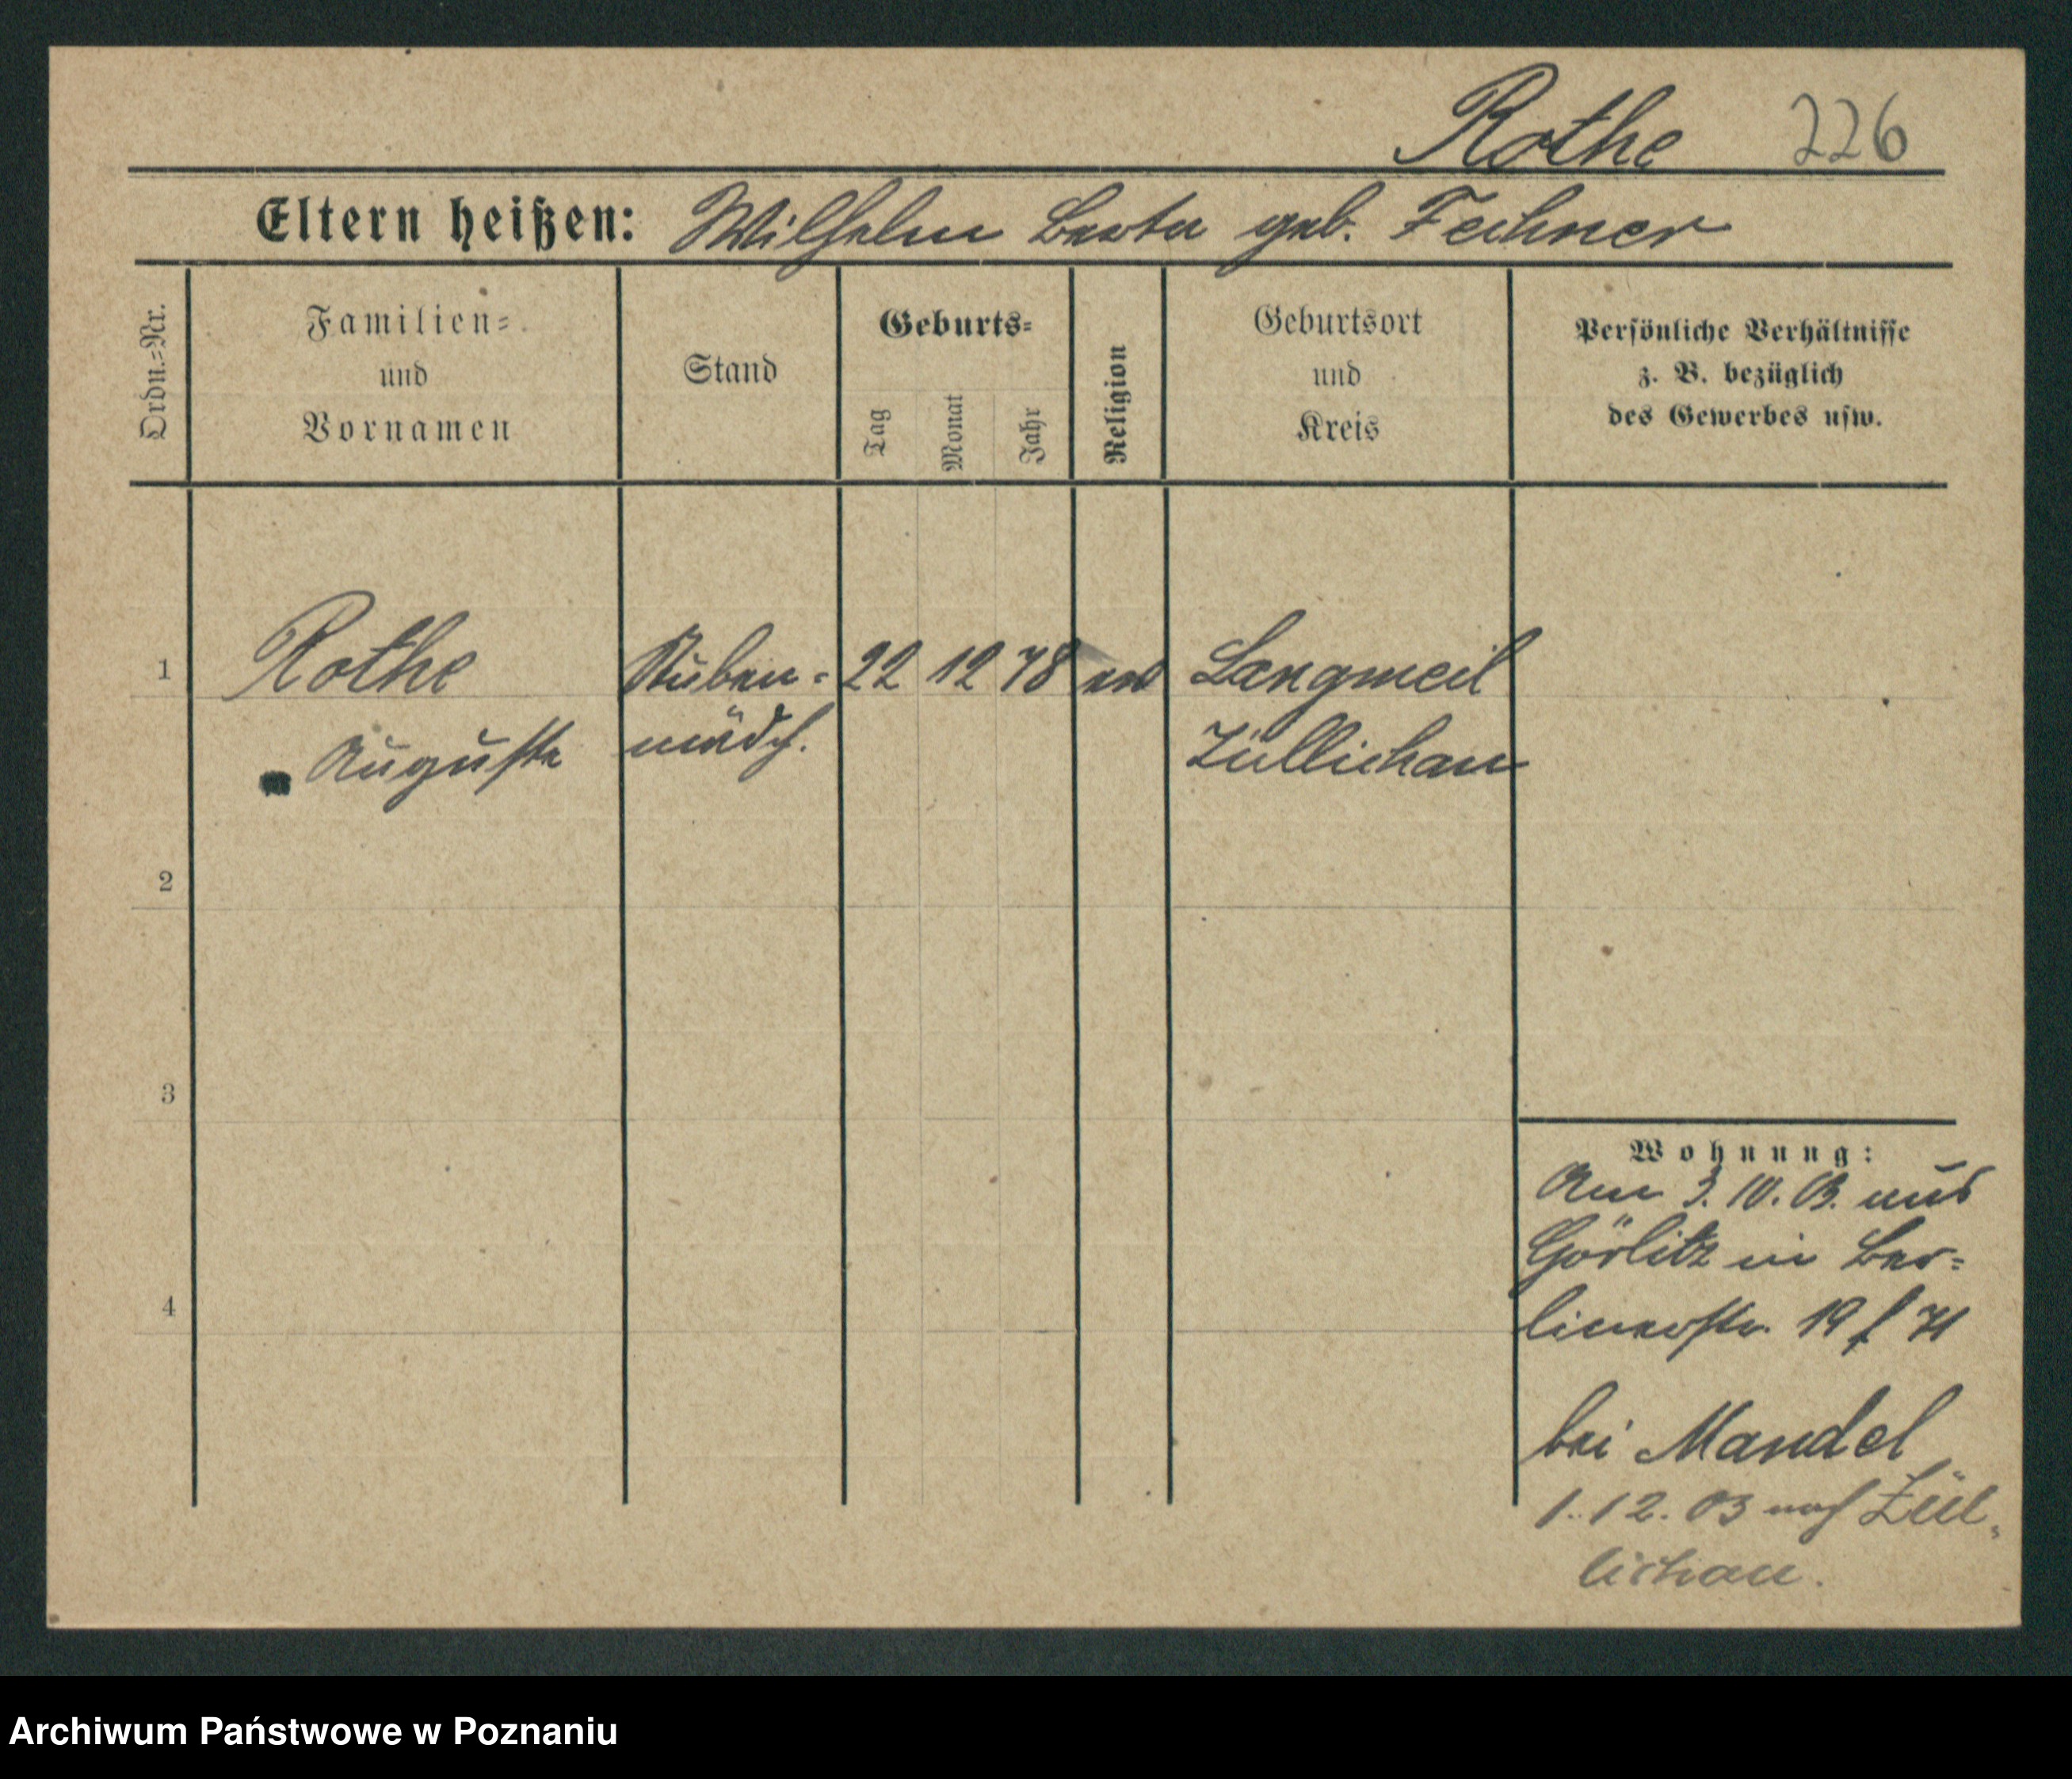 Rothe 226
Eltern heißen: Wilhelm Berta geb. Fechner
Ordn.=Nr.
Familien=
und
Vornamen
Stand
Geburts=
Tag
Monat
Jahr
Religion
Geburtsort
und
Kreis
Persönliche Verhältnisse
z. B. bezüglich
des Gewerbes usw.
1 Rothe Stuben= 22 12 78 ev Langmeil
Auguste mädch. Züllichau
2
3
4
Wohnung:
Am 3. 10. 03. aus
Görlitz in Ber=
linerstr. 19
bei Mandel
1. 12. 03 nach Zül=
lichau.
Archiwum Państwowe w Poznaniu